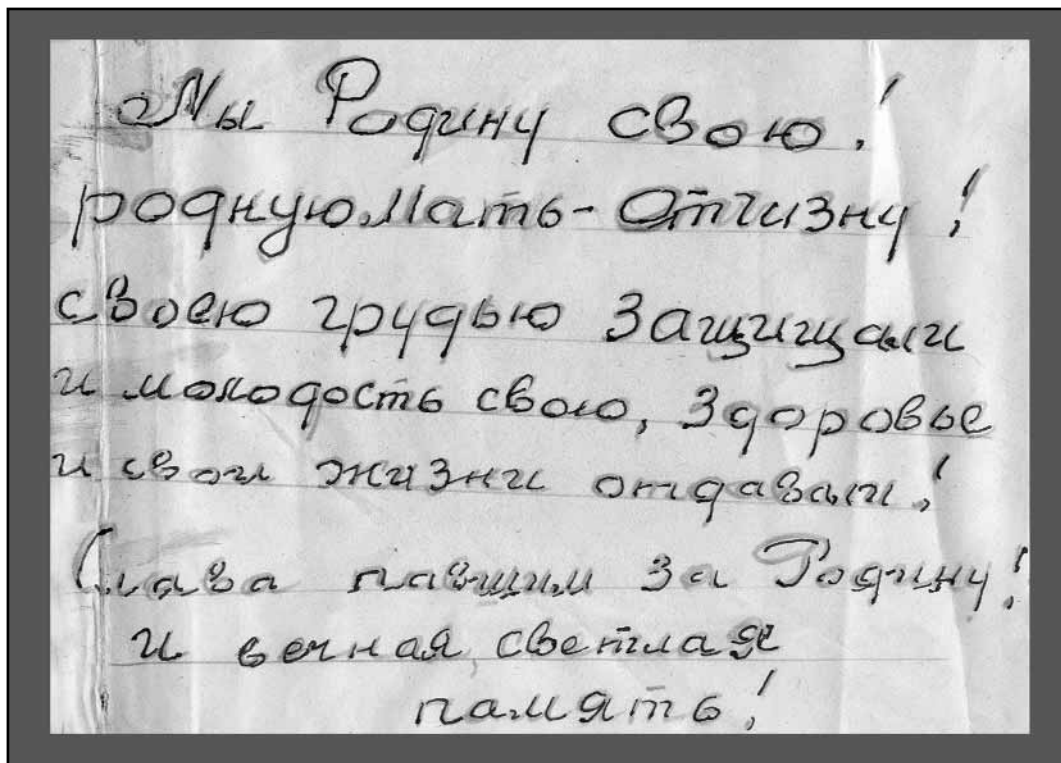 Мы Родину свою!
родную Мать-Отчизну!
своею грудью защищали
и молодость свою, здоровье
и свои жизни отдавали!
Слава павшим за Родину!
и вечная светлая
память!